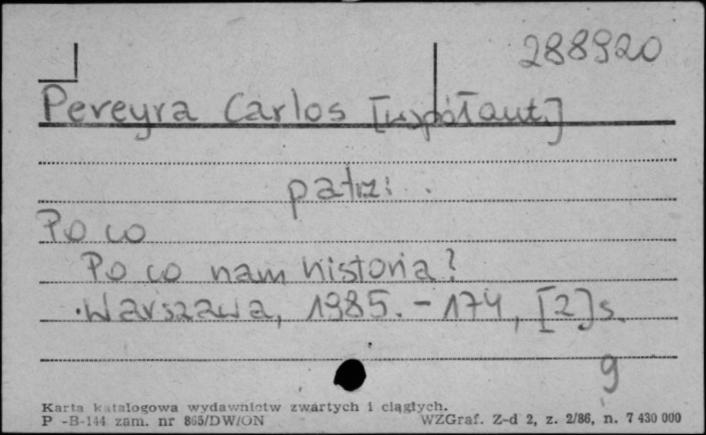 288920
Pereyra Carlos [współaut.]
patrz:
Po co
Po co nam historia?
Warszawa, 1985. - 174, [2]s.
g
Karta katalogowa wydawnictw zwartych i ciągłych.
P -B-144 zam. nr 865/DW/ON WZGraf. Z-d 2, z. 2/86, n. 7 430 000